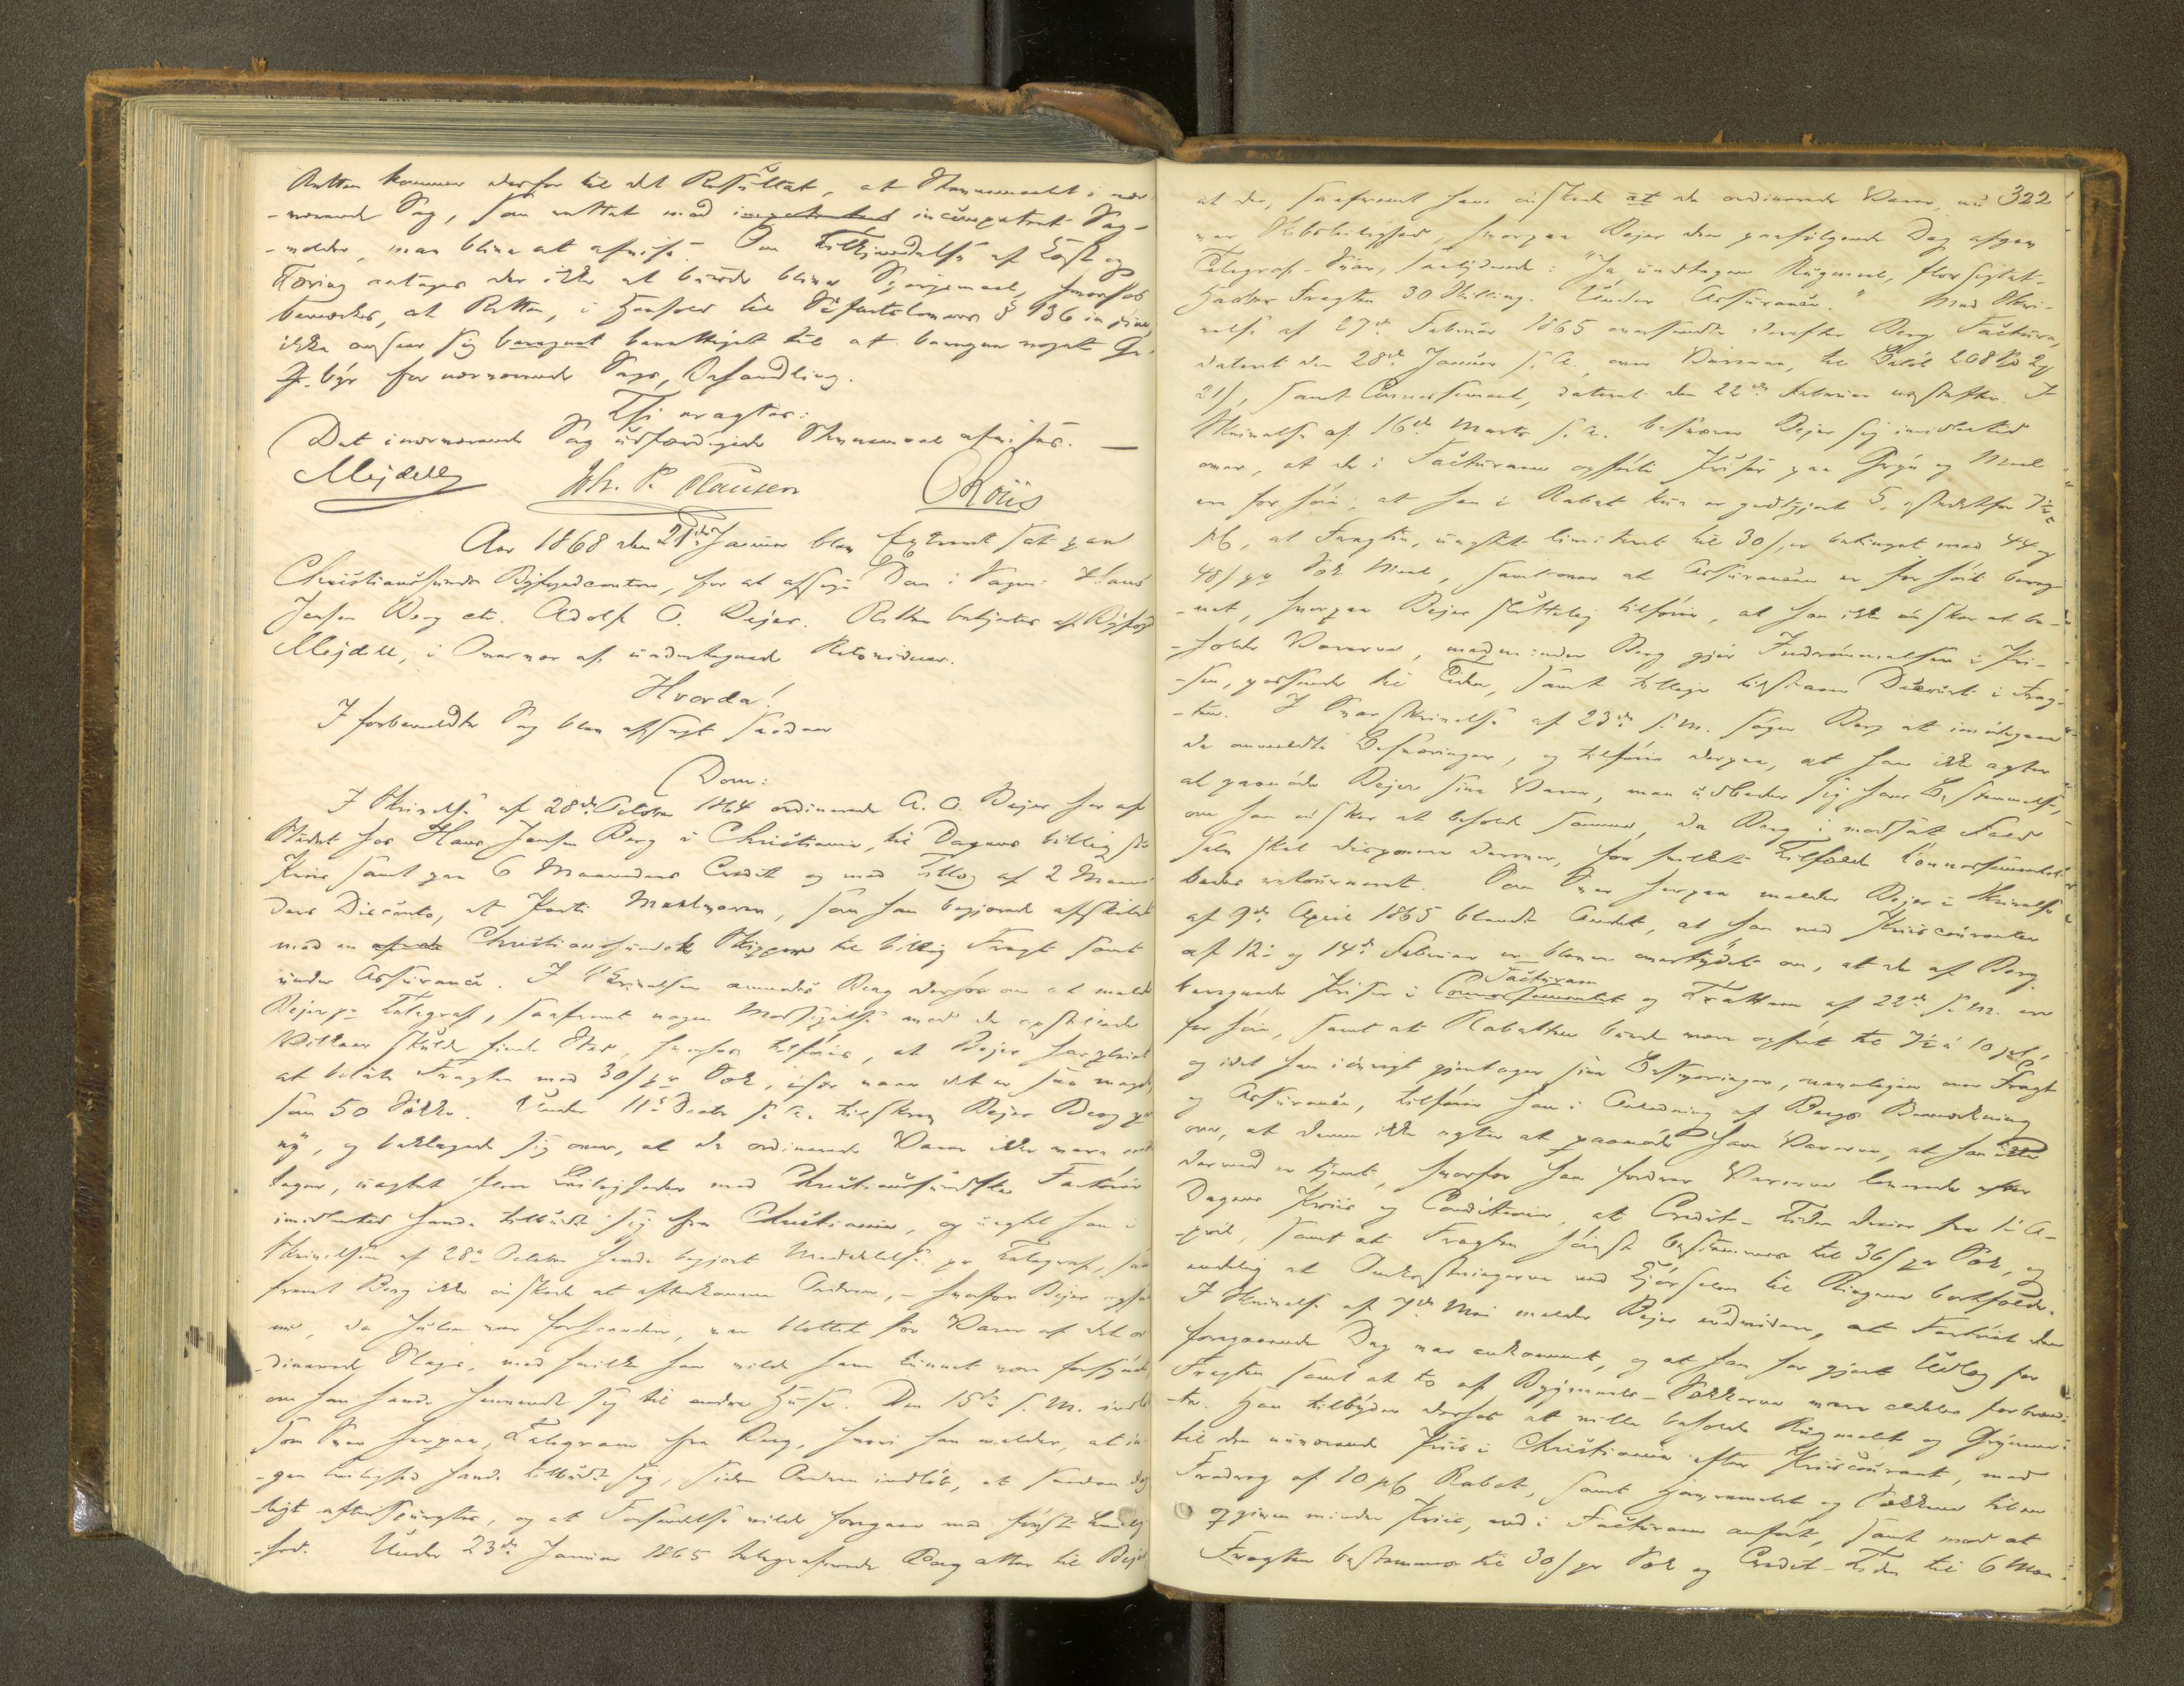 Retten kommer derfor til det Resultat, at Stevnemaalet i nær-
-værende Sag, som rettet mod incompetent Sag-
-volder, maa blive at afvise. Om Tilkjendelse af Kost og
Tæring antages der ikke at burde blive Spørgsmaal, hvorhos
bemærkes, at Retten, i Henhold til Søfartslovens § 136 in fine,
ikke anseer sig beregnet berettiget til at beregne noget Ge-
byr for nærværende Sags Behandling.
Thi eragtes:
Det i nærværende Sag udfærdigede Stevnemaal afvises. —
Mejdell Joh. P. Clausen C Roüs
Aar 1868 den 21de Januar blev Extraret sat paa
Christianssunds Byfogedcontor, for at afsige Dom i Sagen: Hans
Jensen Berg ctr. Adolf O. Dejer. Retten betjentes af Byfoged
Mejdell, i Overvær af undertegnede Retsvidner.
Hvorda!
I forbemeldte Sag blev afsagt saadan
Dom:
I Skrivelse af 28de October 1864 ordinerede A. O. Dejer her af
Stedet hos Hans Jensen Berg i Christiania, til Dagens billigste
Priis samt paa 6 Maaneders Credit og med Tillæg af 2 Maane-
ders Disconto, et Parti Meelvarer, som han begjærede afskibet
med en af de Christianssundske Skippere til billig Fragt samt
under Assurance. I Skrivelsen anmodes Berg derhos om at melde
Dejer pr Telegraf, saafremt nogen Modsigelse mod de opstillede
Vilkaar skulde finde Sted, hvorhos tilføies, at Dejer har pleiet
at betale Fragten med 30 s pr Sæk, især naar det er saa meget
som 50 Sække. Under 11te Decbr s. A. tilskrev Dejer Berg paa
ny, og beklagede sig over, at de ordinerede Varer ikke vare mod-
tagne, uagtet flere Leiligheder med Christianssundske Fartøier
imidlertid havde tilbudt sig fra Christiania, og uagtet han i
Skrivelsen af 28de October havde begjært Meddelelse pr Telegraf, saa-
fremt Berg ikke ønskede at efterkomme Ordren, – hvorfor Dejer ogsaa
nu, da Julen var forhaanden, var blottet for Varer af det or-
-dinerede Slags, med hvilke han vilde have kunnet være forsynet,
om han havde henvendt sig til andre Huse. Den 15de s. M. indløb
som Svar herpaa, Telegram fra Berg, hvori han melder, at in-
-gen Leilighed havde tilbudt sig, siden Ordren indløb, at saadan dag-
ligt efterspurgtes, og at Forsendelse vilde foregaae med første Leilig-
-hed. Under 23de Januar 1865 telegraferede Berg atter til Dejer
322
at der, saafremt han ønskede at de ordinerede Varer, nu
var Skibsleilighed, hvorpaa Dejer den paafølgende Dag afgav
Telegraf-Svar, saalydende: "Ja undtagen Rugmeel, flor sigtet-
Haaber Fragten 30 Skilling. Under Assurance." Med Skri-
velse af 27de Februar 1865 oversendte derefter Berg Factura,
dateret den 28de Januar s. A. over Varerne, til Beløb 208 Spd 2
21 s, samt Connossement, dateret den 22de Februar næstefter. I
Skrivelse af 16de Marts s. A. besværer Dejer sig imidlertid
over, at de i Facturaen opførte Priser paa Gryn og Meel
ere for høie; at han i Rabat kun er godtgjort 5, istedetfor 7½
pC, at Fragten, uagtet limiteret til 30 s, er betinget med 44 og
48 s pr Sæk Meel, samt over at Assurancen er for høit bereg-
-net, hvorpaa Dejer sluttelig tilføier, at han ikke ønsker at be-
-holde Varerne, medmindre Berg gjør Indrømmelser i Pri-
-sen, passende til Tiden, samt tillige tilstaaer Decourt i Frag-
-ten. I Svarskrivelse af 23de s. M. søger Berg at imødegaae
de anmeldte Besværinger, og tilføier derpaa, at han ikke agter
at paanøde Dejer sine Varer, men udbeder sig hans Bestemmelse,
om han ønsker at beholde samme, da Berg i modsat Fald
selv skal disponere derover, for hvilket Tilfælde Connossementet
bedes retourneret. Som Svar herpaa melder Dejer i Skrivelse
af 9de April 1865 blandt Andet, at han ved Priiscouranter
af 12te og 14de Februar er bleven overtydet om, at de af Berg
beregnede Priser i Connossementet Facturaen og Tratten af 22de s. M. ere
for høie, samt at Rabatten burde være opført til 7½ à 10 pCt,
og idet han iøvrigt gjentager sine Besværinger, navnligen over Fragt
og Assurance, tilføier han i Anledning af Bergs Bemærkning
over, at denne ikke agter at paanøde ham Varerne, at han ikke
dermed er tjent, hvorfor han fordrer Varerne leverede efter
Dagens Priis og Conditioner, at Credit-Tiden deraf fra 1ste A-
-pril, samt at Fragten høiest bestemmes til 36 s pr Sæk, og
endelig at Omkostningerne ved Kjørselen til Piperne bortfalder.
I Skrivelse af 7de Mai melder Dejer endvidere, at Fartøiet den
foregaaende Dag var ankommet, og at han har gjort Udlæg for
Fragten samt at to af Bygmeels-Sækkerne vare aldeles forbrænd-
te. Han tilbyder derhos at ville beholde Rugmelet og Grynene
til den nuværende Priis i Christiania efter Priiscourant, med
Fradrag af 10 pC Rabat, samt Havremelet og Sækkene til en
opgiven mindre Priis, end i Facturaen anført, samt mod at
Fragten bestemmes til 30 s pr Sæk og Credit-Tiden til 6 Maa-